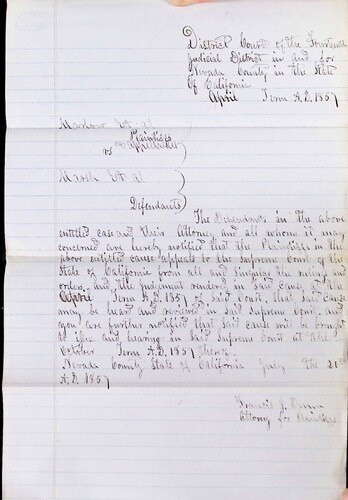 District Court of the Fourteenth
Judicial District in and for
Nevada County in the State
Of California
April Term A.D. 1857
Marlow Et. al
Plaintiffs
vs
Marsh Et. al
Defendants
The Defendants in the above
entitled case and their Attorney and all whome it may
concerned are hereby notified that the Plaintiffs in the
above entitled cause appeals to the Supreme Court of the
State of California from all and singular the rulings and
orders, and the judgement rendered in said cause at the
April Term A.D. 1857 of said Court, that said cause
may be heard and reviewed in said Supreme Court, and
you are further notified that said cause will be brought
to issue and hearing in said Supreme Court at the
October Term A.D. 1857 thereof
Nevada County State of California July the 21st
A.D. 1857
Francis J. Dunn
Attorney for Plaintiffs